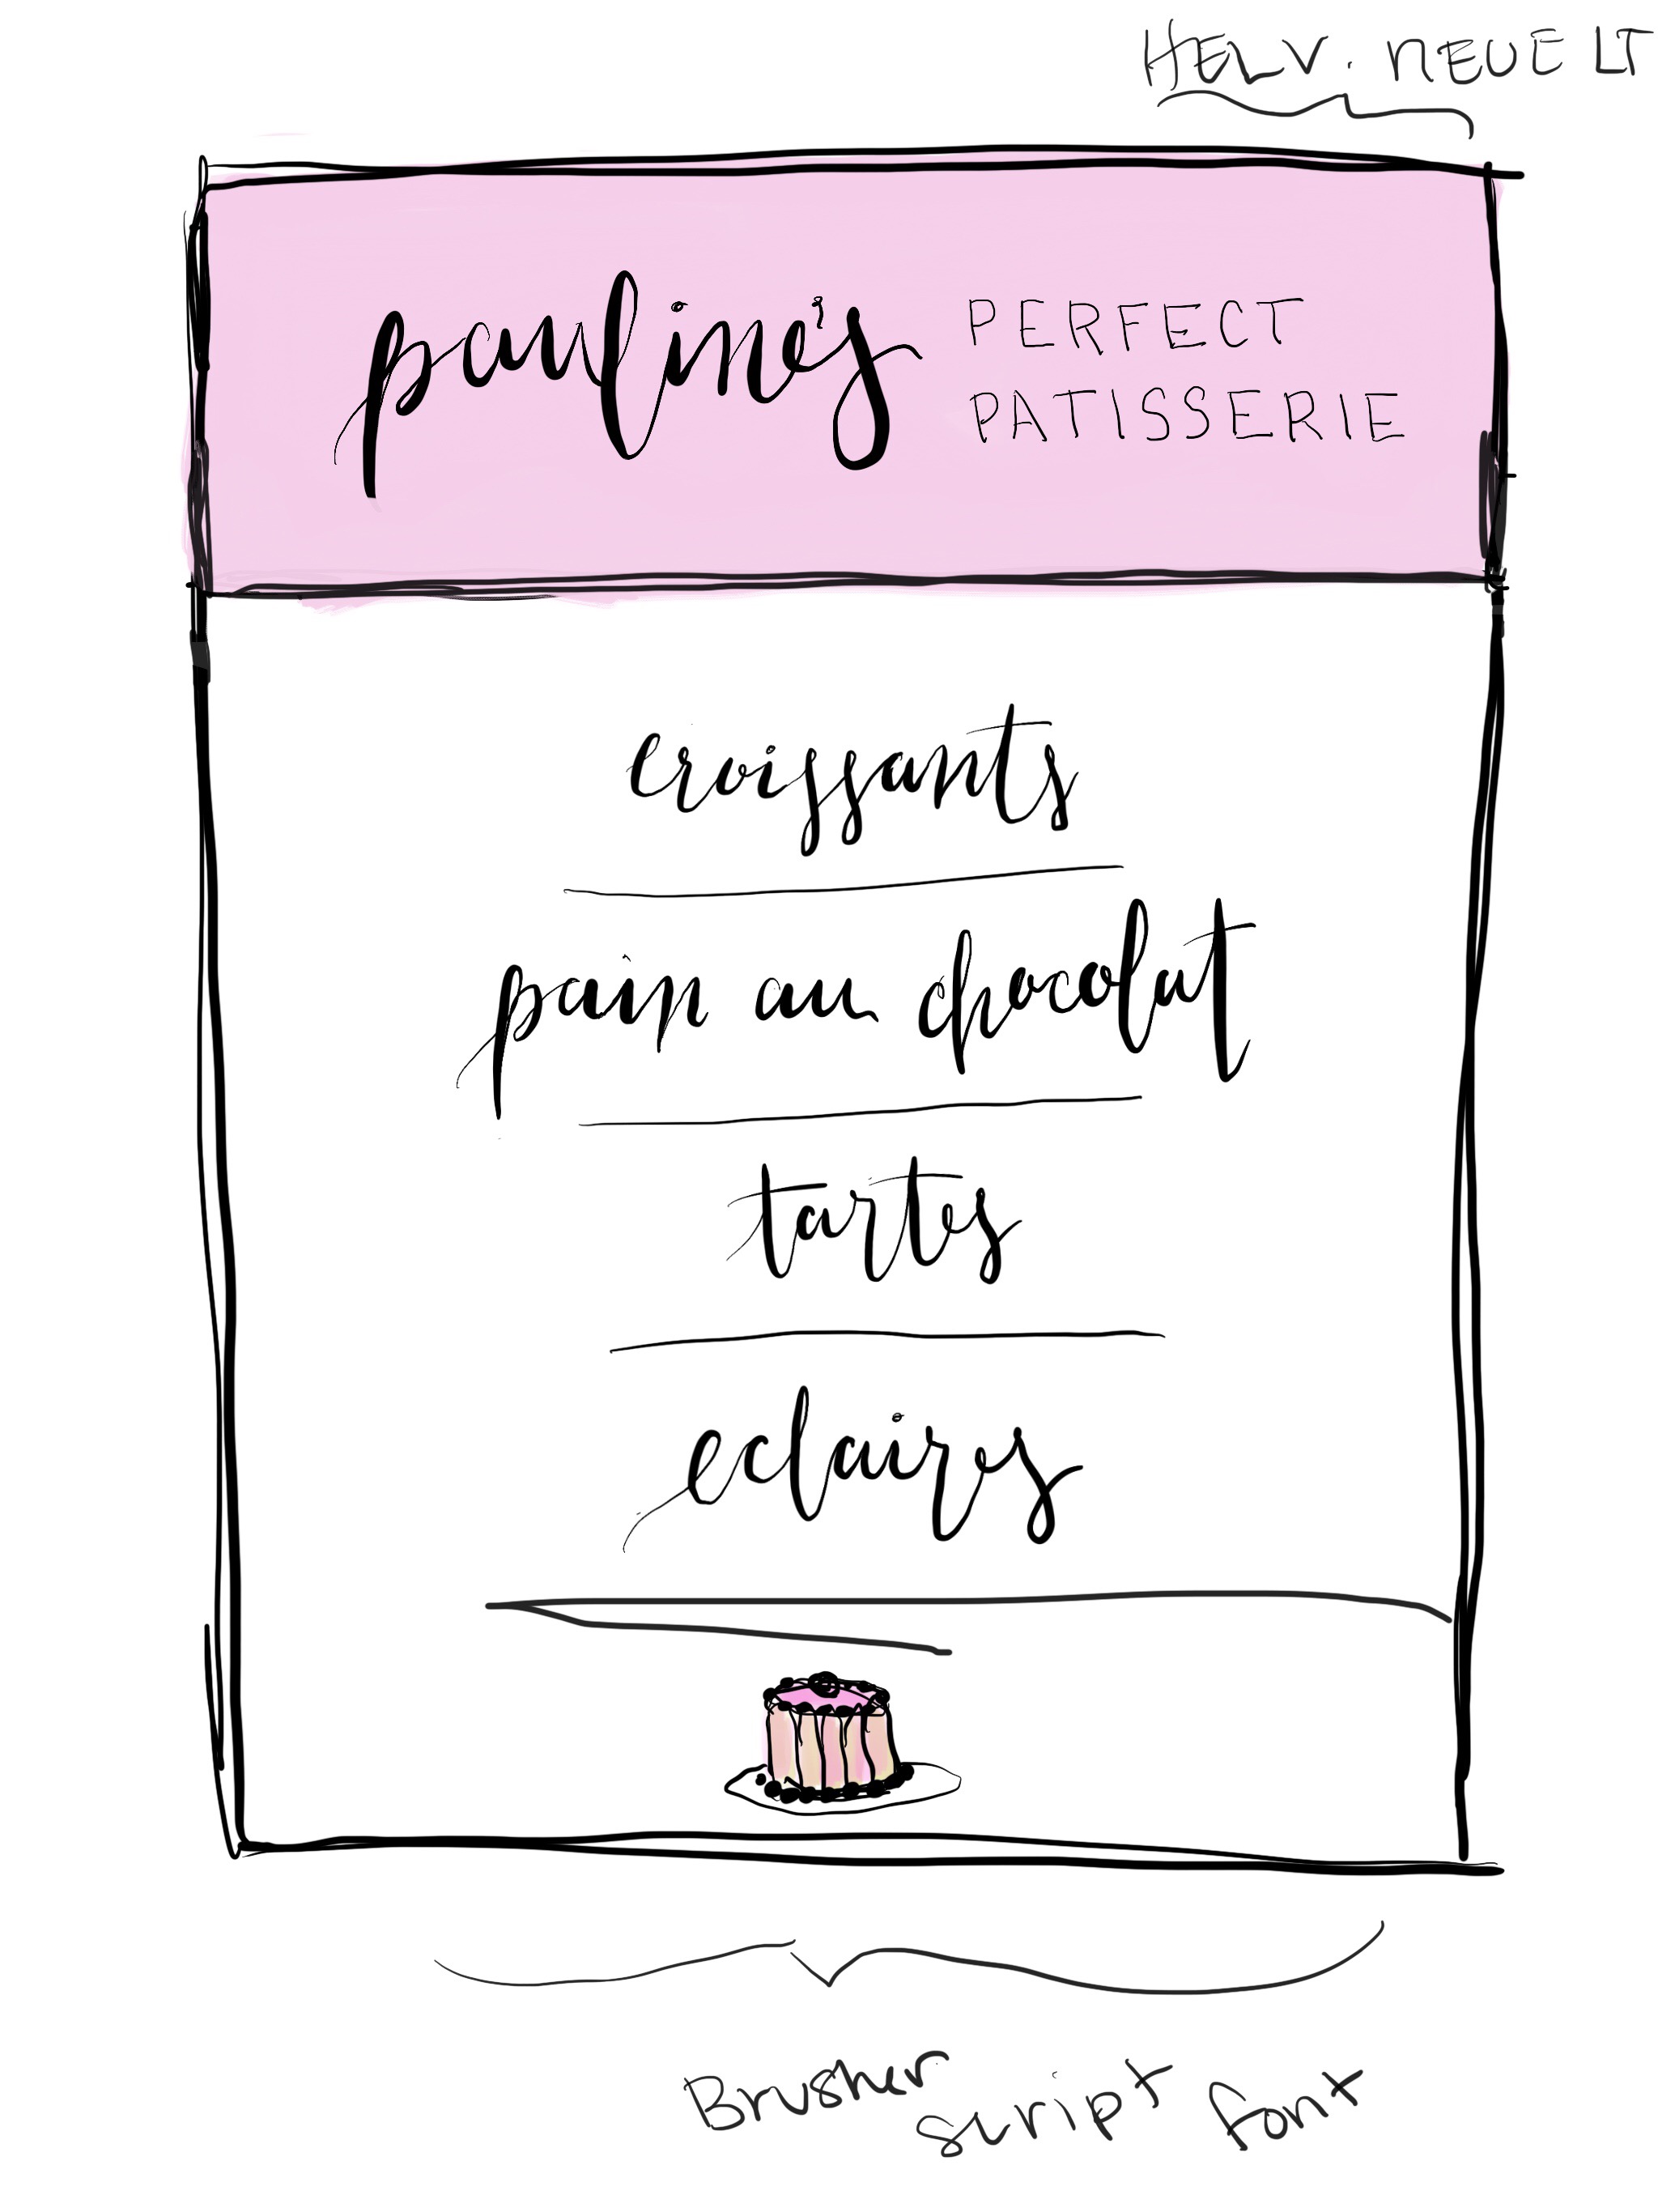 HELV. NEUE LT
pauline's PERFECT
PATISSERIE
croissants
pain au chocolat
tartes
eclaires
Brusher script font